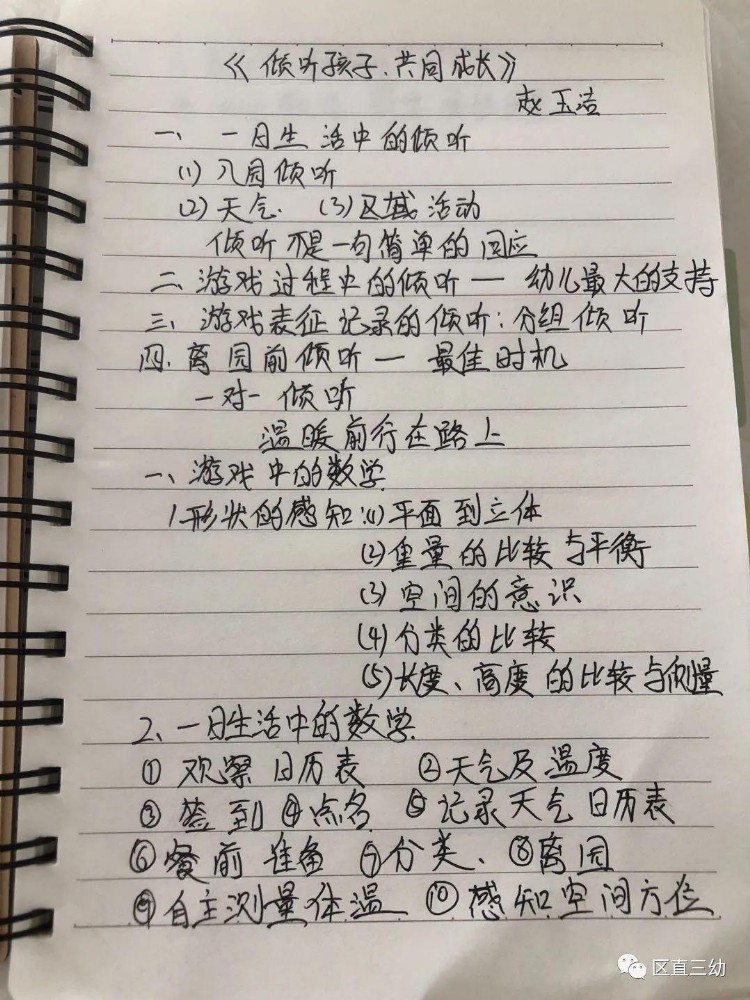 《倾听孩子、共同成长》
赵玉洁
一、一日生活中的倾听
(1)入园倾听
(2)天气 (3)区域活动
倾听不是一句简单的回应
二、游戏过程中的倾听一 幼儿最大的支持
三、游戏表征记录的倾听:分组倾听
四、离园前倾听一 最佳时机
一对一 倾听
温暖前行在路上
一、游戏中的数学
1.形状的感知:(1)平面到立体
(2)重量的比较与平衡
(3)空间的意识
(4)分类的比较
(5)长度、高度的比较与测量
2、一日生活中的数学
① 观察日历表 ②天气及温度
③ 签到 ④点名 ⑤记录天气日历表
⑥ 餐前准备 ⑦分类、⑧离园
⑨自主测量体温 ⑩感知空间方位
区直三幼